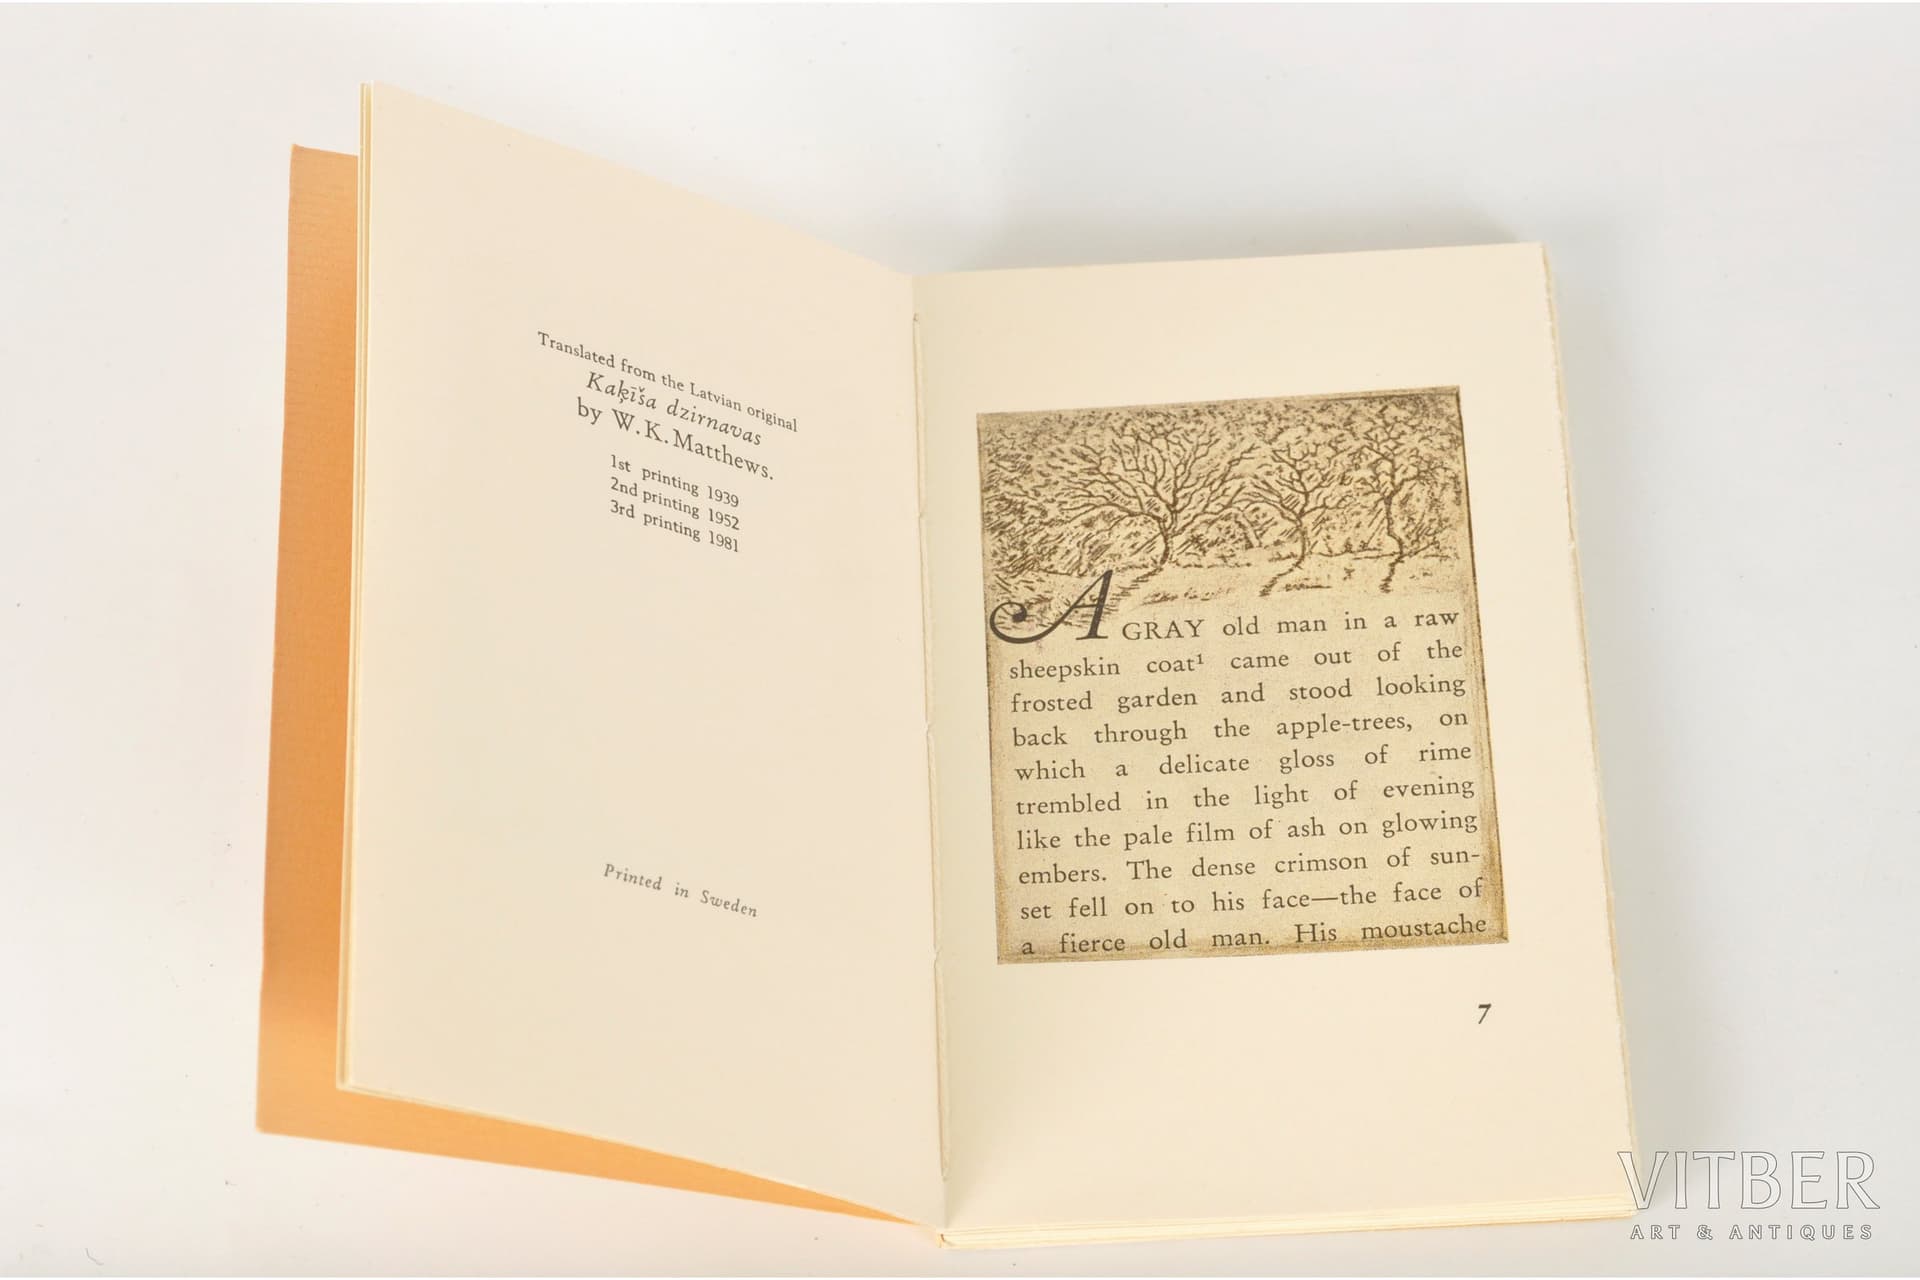 Translated from the Latvian original
Kaķīša dzirnavas
by W. K. Matthews.
1st printing 1939
2nd printing 1952
3rd printing 1981
Printed in Sweden
A GRAY old man in a raw
sheepskin coat¹ came out of the
frosted garden and stood looking
back through the apple-trees, on
which a delicate gloss of rime
trembled in the light of evening
like the pale film of ash on glowing
embers. The dense crimson of sun-
set fell on to his face—the face of
a fierce old man. His moustache
7
VITBER
ART & ANTIQUES